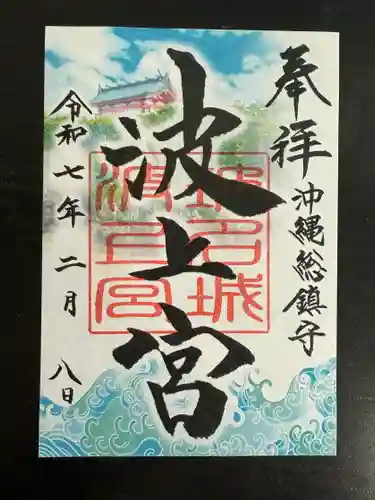 奉拝
沖縄総鎮守
波上宮
波上宮
令和七年二月八日